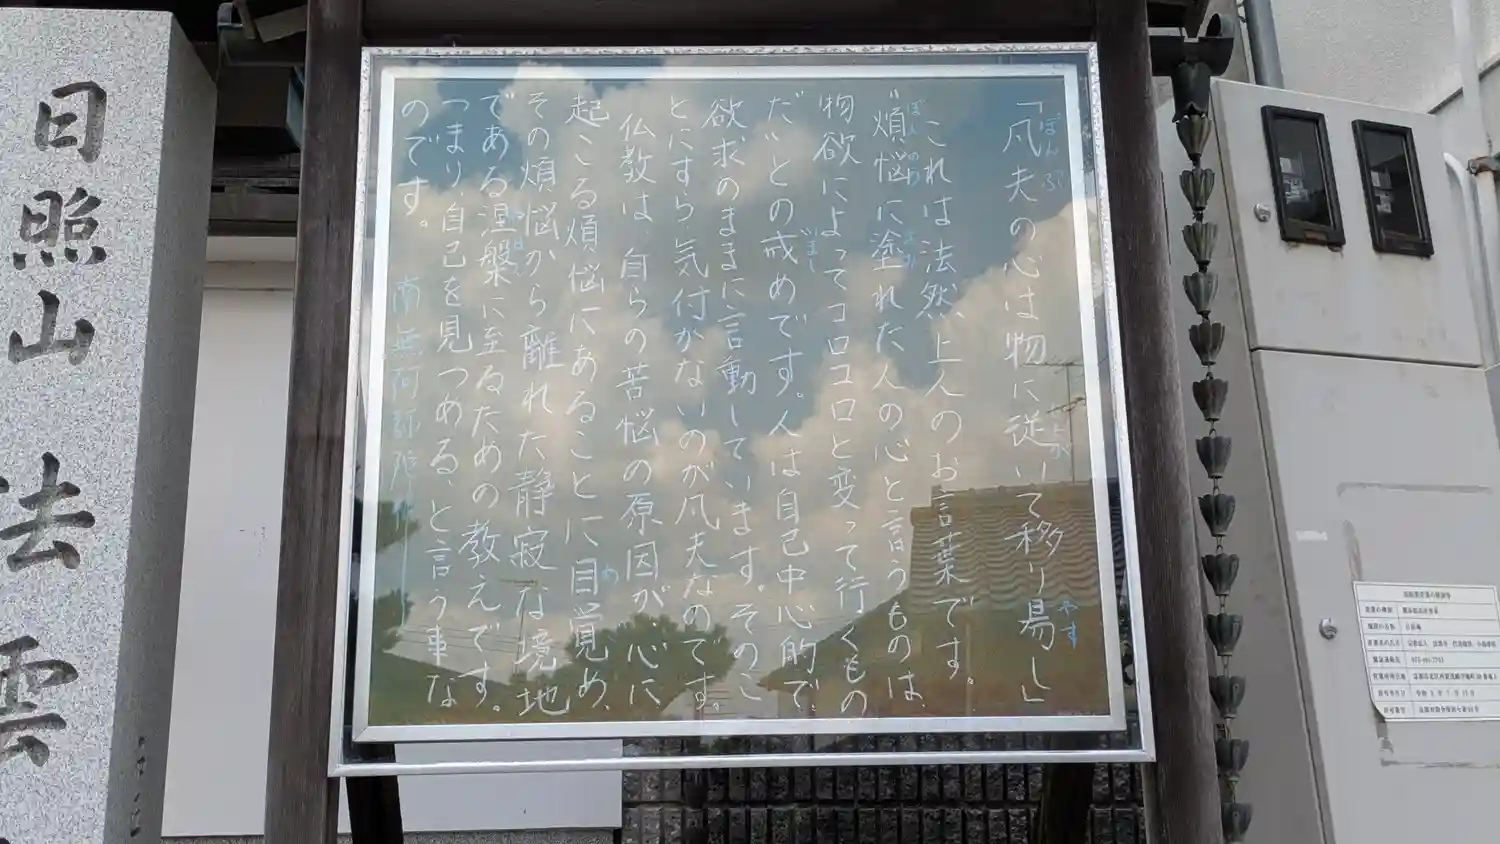 「凡夫の心は物に従いて移り易し」
ぼんぷ
したが
やす
これは法然上人のお言葉です。
"煩悩に塗れた人の心と言うものは、
ぼんのう
まみ
物欲によってコロコロと変って行くもの
だ"との戒めです。人は自己中心的で、
いまし
欲求のままに言動しています。そのこ
とにすら気付かないのが凡夫なのです。
仏教は、自らの苦悩の原因が、心に
起こる煩悩にあることに目覚め、
め
その煩悩から離れた静寂な境地
である涅槃に至るための教えです。
ねはん
つまり、自己を見つめる、と言う事な
のです。
南無阿弥陀仏
日照山 法雲